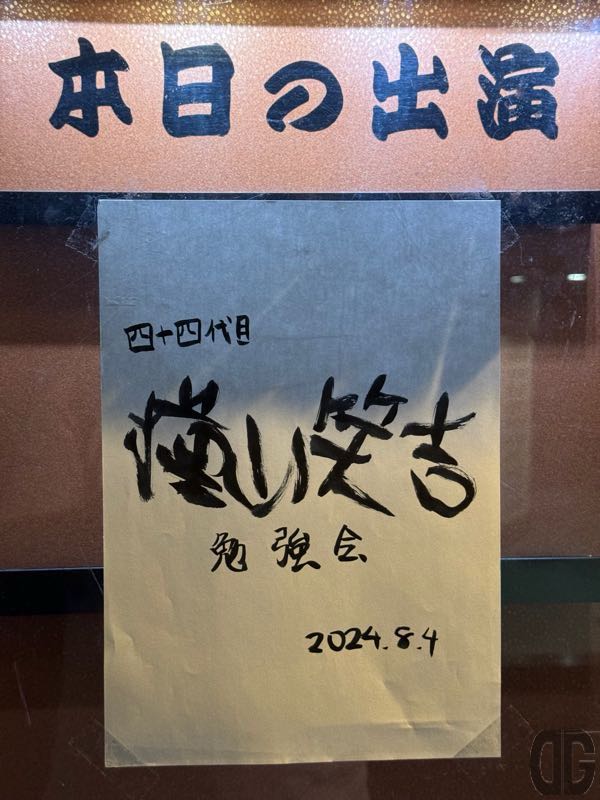 本日の出演
四十四代目
笑吉
勉強会
2024.8.4
DG